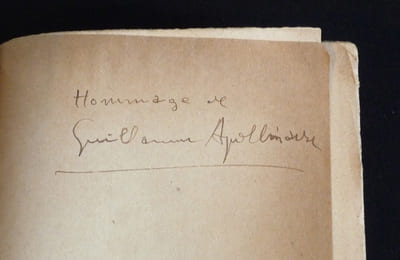 Hommage de
Guillaume Apollinaire